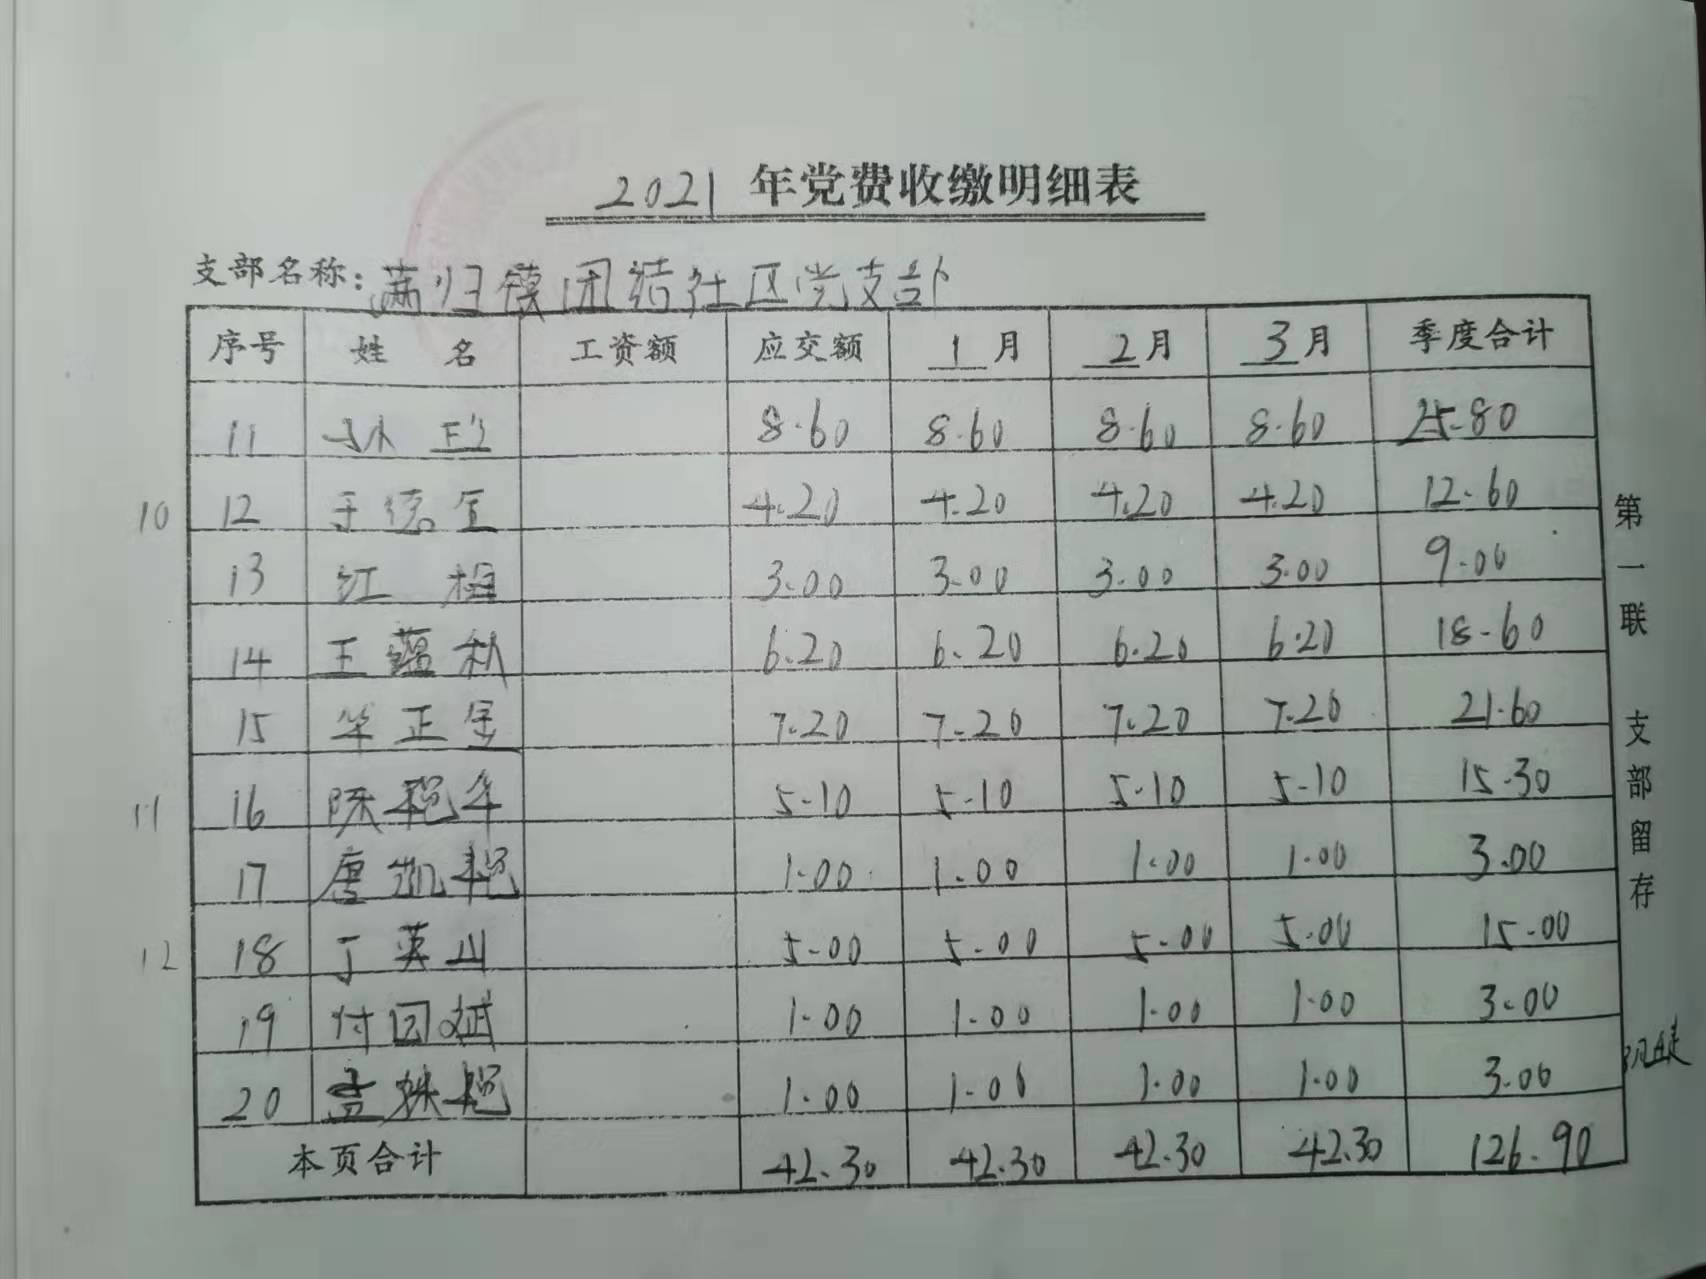 2021 年党费收缴明细表
支部名称: 满归镇团结社区党支部
序号 姓名 工资额 应交额 1月 2月 3月 季度合计
11 8.60 8.60 8.60 8.60 25.80
10 12 于德金 4.20 4.20 4.20 4.20 12.60
13 江 3.00 3.00 3.00 3.00 9.00
14 王蕴秋 6.20 6.20 6.20 6.20 18.60
15 毕正金 7.20 7.20 7.20 7.20 21.60
11 16 陈艳年 5.10 5.10 5.10 5.10 15.30
17 唐凯艳 1.00 1.00 1.00 1.00 3.00
12 18 丁英山 5.00 5.00 5.00 5.00 15.00
19 付国斌 1.00 1.00 1.00 1.00 3.00
20 孟姝艳 1.00 1.00 1.00 1.00 3.00
本页合计 42.30 42.30 42.30 42.30 126.90
第一联 支部留存